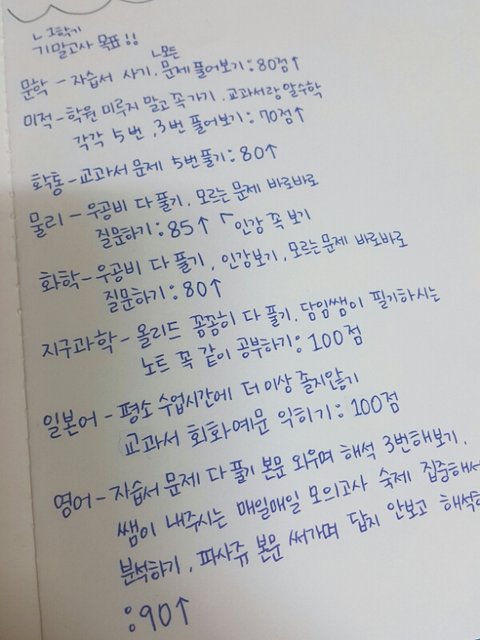 ㄴ 2학기
기말고사 목표!!
ㄴ모든
문학 - 자습서 사기, 문제 풀어보기 : 80점↑
미적 - 학원 미루지 말고 꼭 가기, 교과서랑 알수학
각각 5번, 3번 풀어보기 : 70점↑
확통 - 교과서 문제 5번풀기 : 80↑
물리 - 우공비 다 풀기, 모르는 문제 바로바로
질문하기 : 85↑ 인강 꼭 보기
화학 - 우공비 다 풀기, 인강보기, 모르는 문제 바로바로
질문하기 : 80↑
지구과학 - 올리드 꼼꼼히 다 풀기, 담임쌤이 필기하시는
노트 꼭 같이 공부하기 : 100점
일본어 - 평소 수업시간에 더 이상 졸지않기
교과서 회화예문 익히기 : 100점
영어 - 자습서 문제 다 풀기 본문 외우며 해석 3번해보기,
쌤이 내주시는 매일매일 모의고사 숙제 집중해서
분석하기, 파사쥬 본문 써가며 답지 안보고 해석
: 90↑